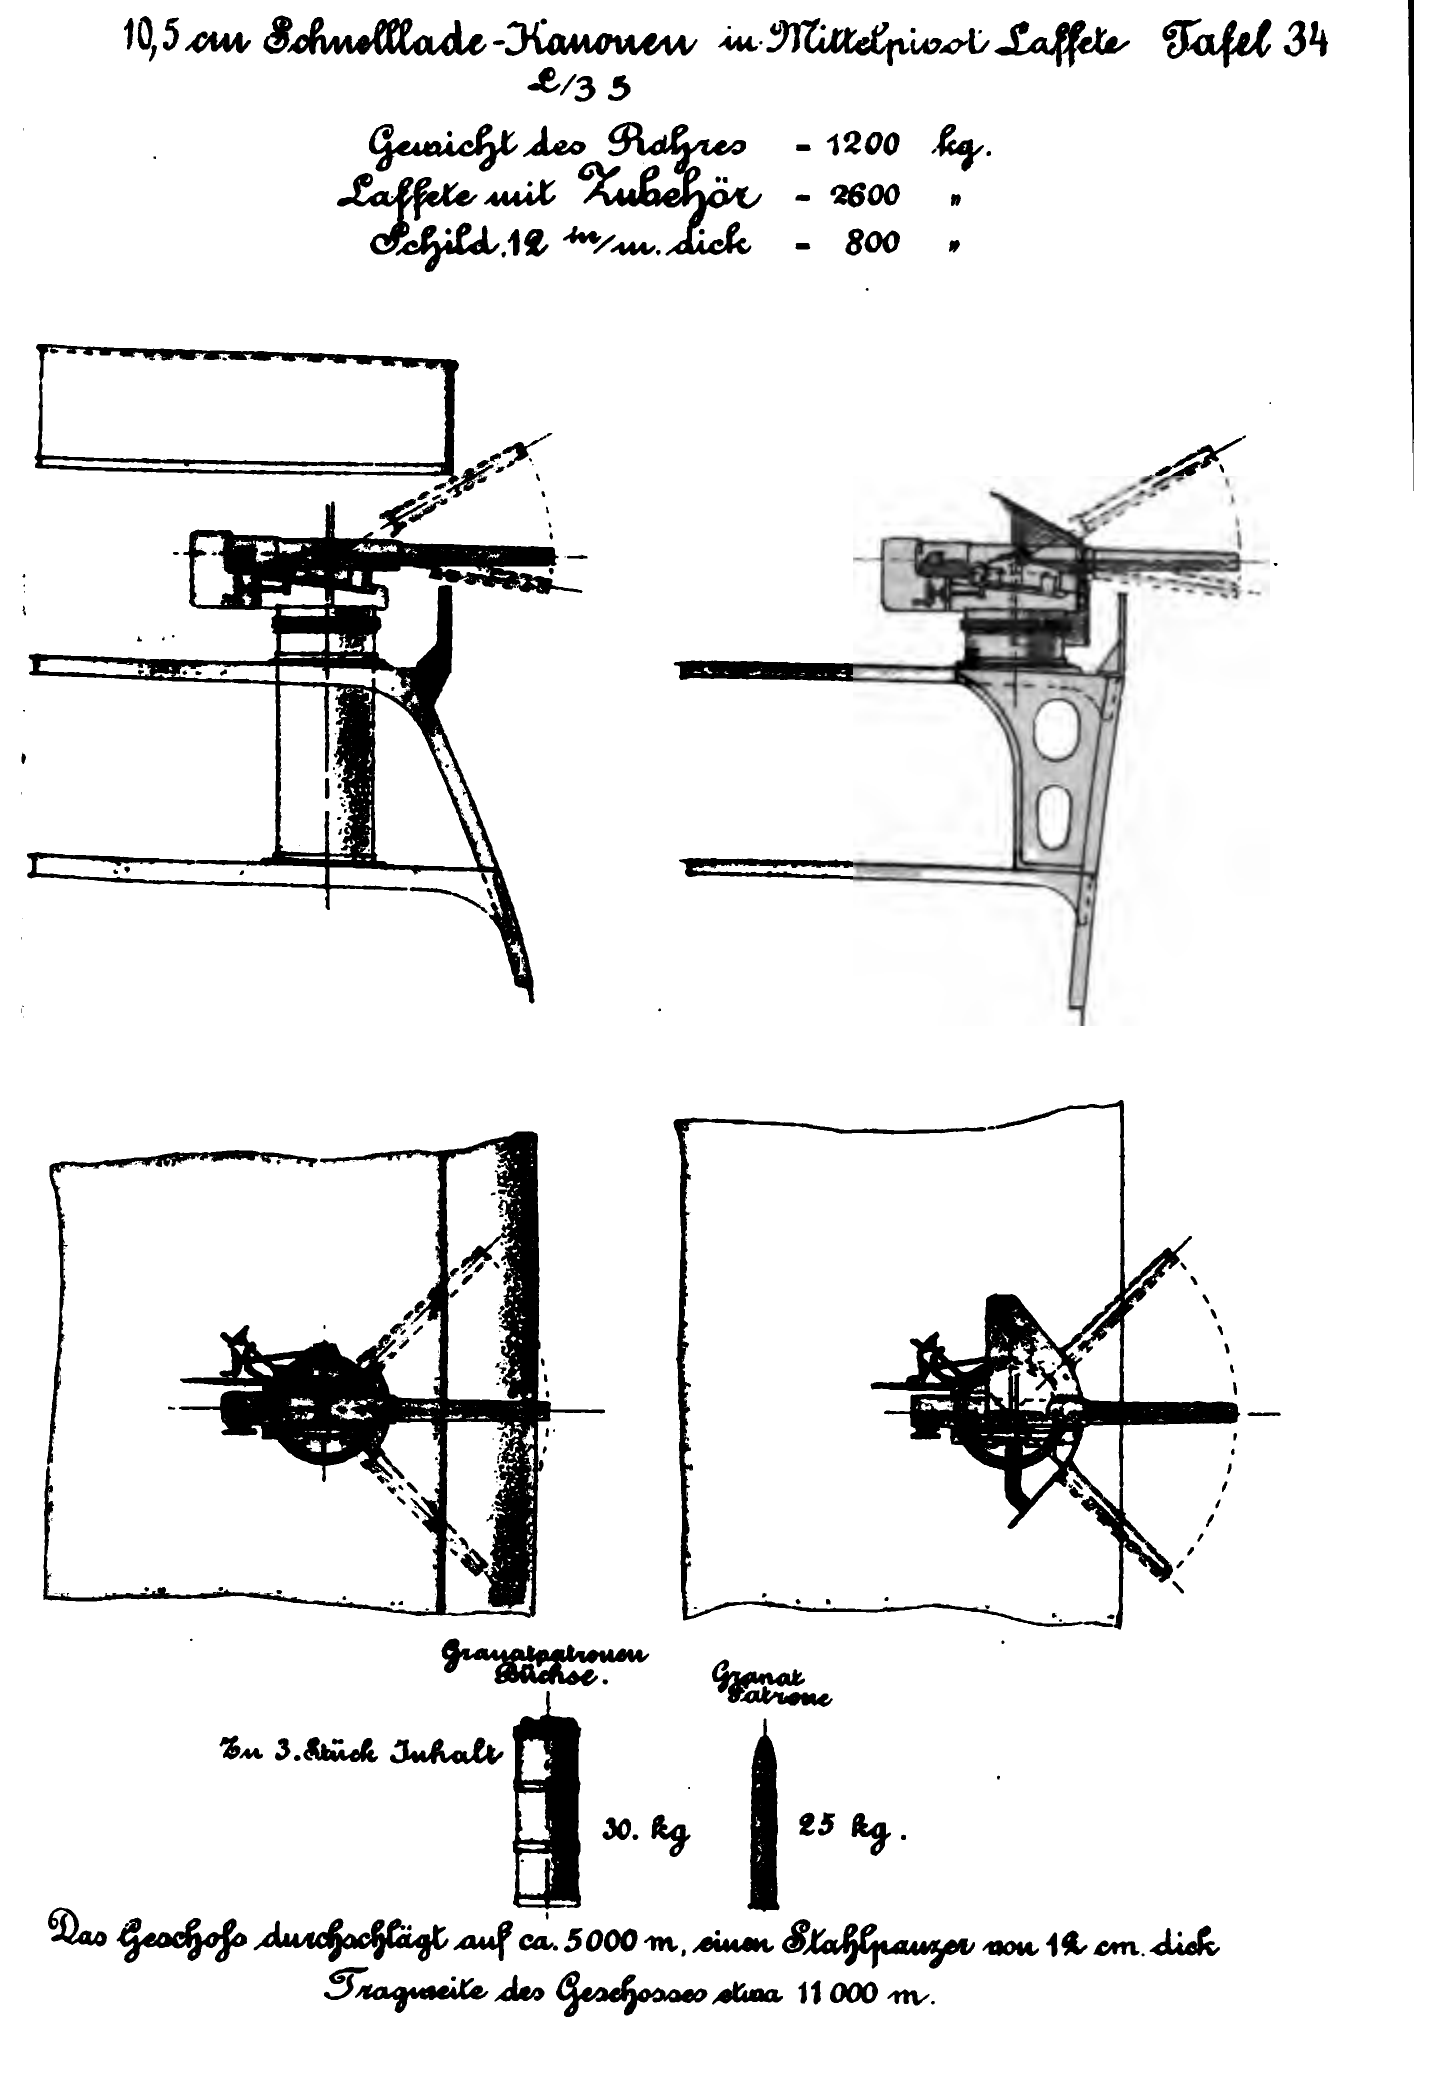 10,5 cm Schnelllade-Kanonen in Mittelpivot Laffete Tafel 34
L/35
Gewicht des Rohres = 1200 kg.
Laffete mit Zubehör = 2600 "
Schild 12 m/m. dick = 800 "
Granatpatronen
Büchse.
Granat
Patrone
Zu 3. Stück Inhalt
30. kg
25 kg.
Das Geschoß durchschlägt auf ca. 5000 m, einen Stahlpanzer von 12 cm. dick
Tragweite des Geschosses etwa 11000 m.